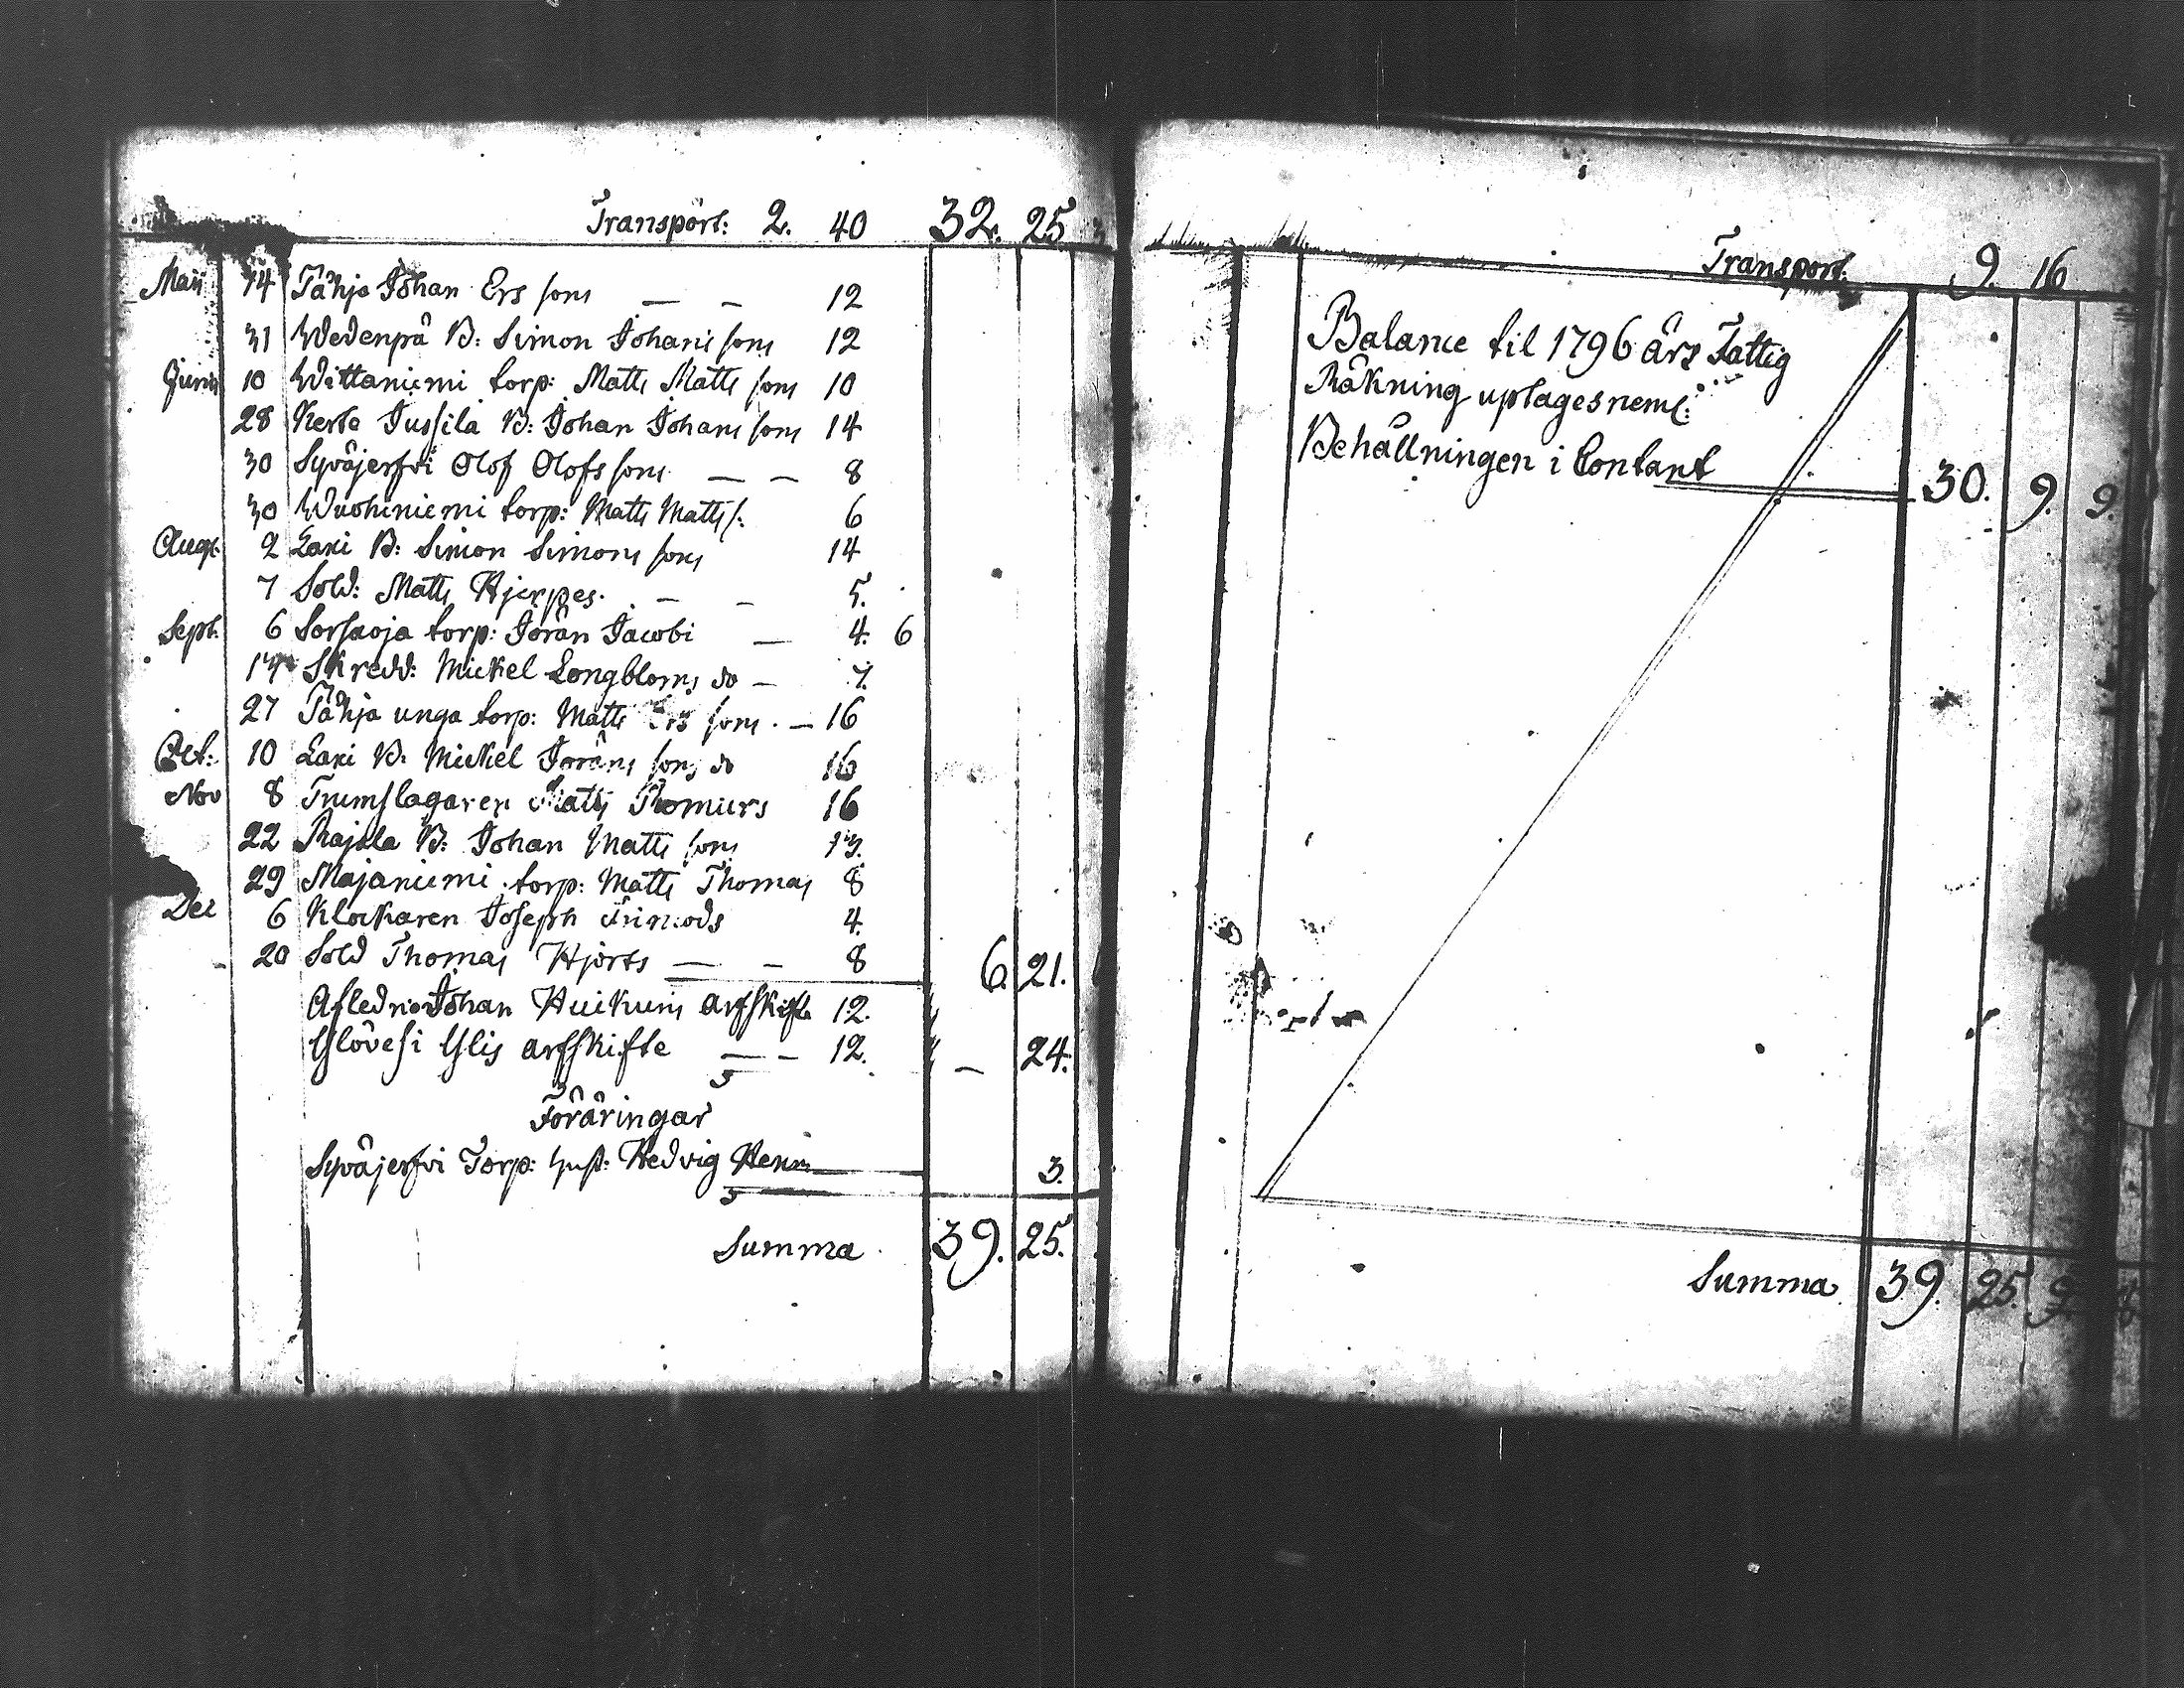 Transport: 2. 40 32. 25
Maij 14 Tähjä Johan Ers sons — — 12
31 Wedenpä B: Simon Johans sons 12
Junii 10 Wittaniemi torp: Matts Matts sons 10
28 Kerte Jussila B: Johan Johans sons 14
30 Syväjerfvi Olof Olofs sons — — 8
30 Wuoheniemi torp: Matts Matts s: 6
Aug. 2 Laxi B: Simon Simons sons 14
7 Sold: Matts Hjerpes. — — 5.
Sept. 6 Sorsaoja torp: Jöran Jacobi — 4. 6
14 Skredd: Mickel Longbloms do — 7.
27 Tähjä unga torp: Matts Ers sons. — 16
Oct: 10 Laxi B: Mickel Jörans sons do 16
Nov 8 Trumslagaren Matts Thomiers 16
22 Rajala B: Johan Matts sons 13.
29 Majaniemi torp: Matts Thomas 8
Dec 6 Klockaren Joseph 4.
20 Sold Thomas Hjorts — — 8 6. 21.
Afledne Johan Huikuris arfskifte 12.
Ylövesi Ylis arfskifte — — 12. — 24.
Föräringar
Syväjerfvi Torp: hust: Hedvig Henr 3.
Summa 39. 25.
Transport. 9. 16
Balance til 1796 års Fattig
Räkning uptages neml:
Behållningen i Contant 30. 9. 9.
Summa 39. 25. 9